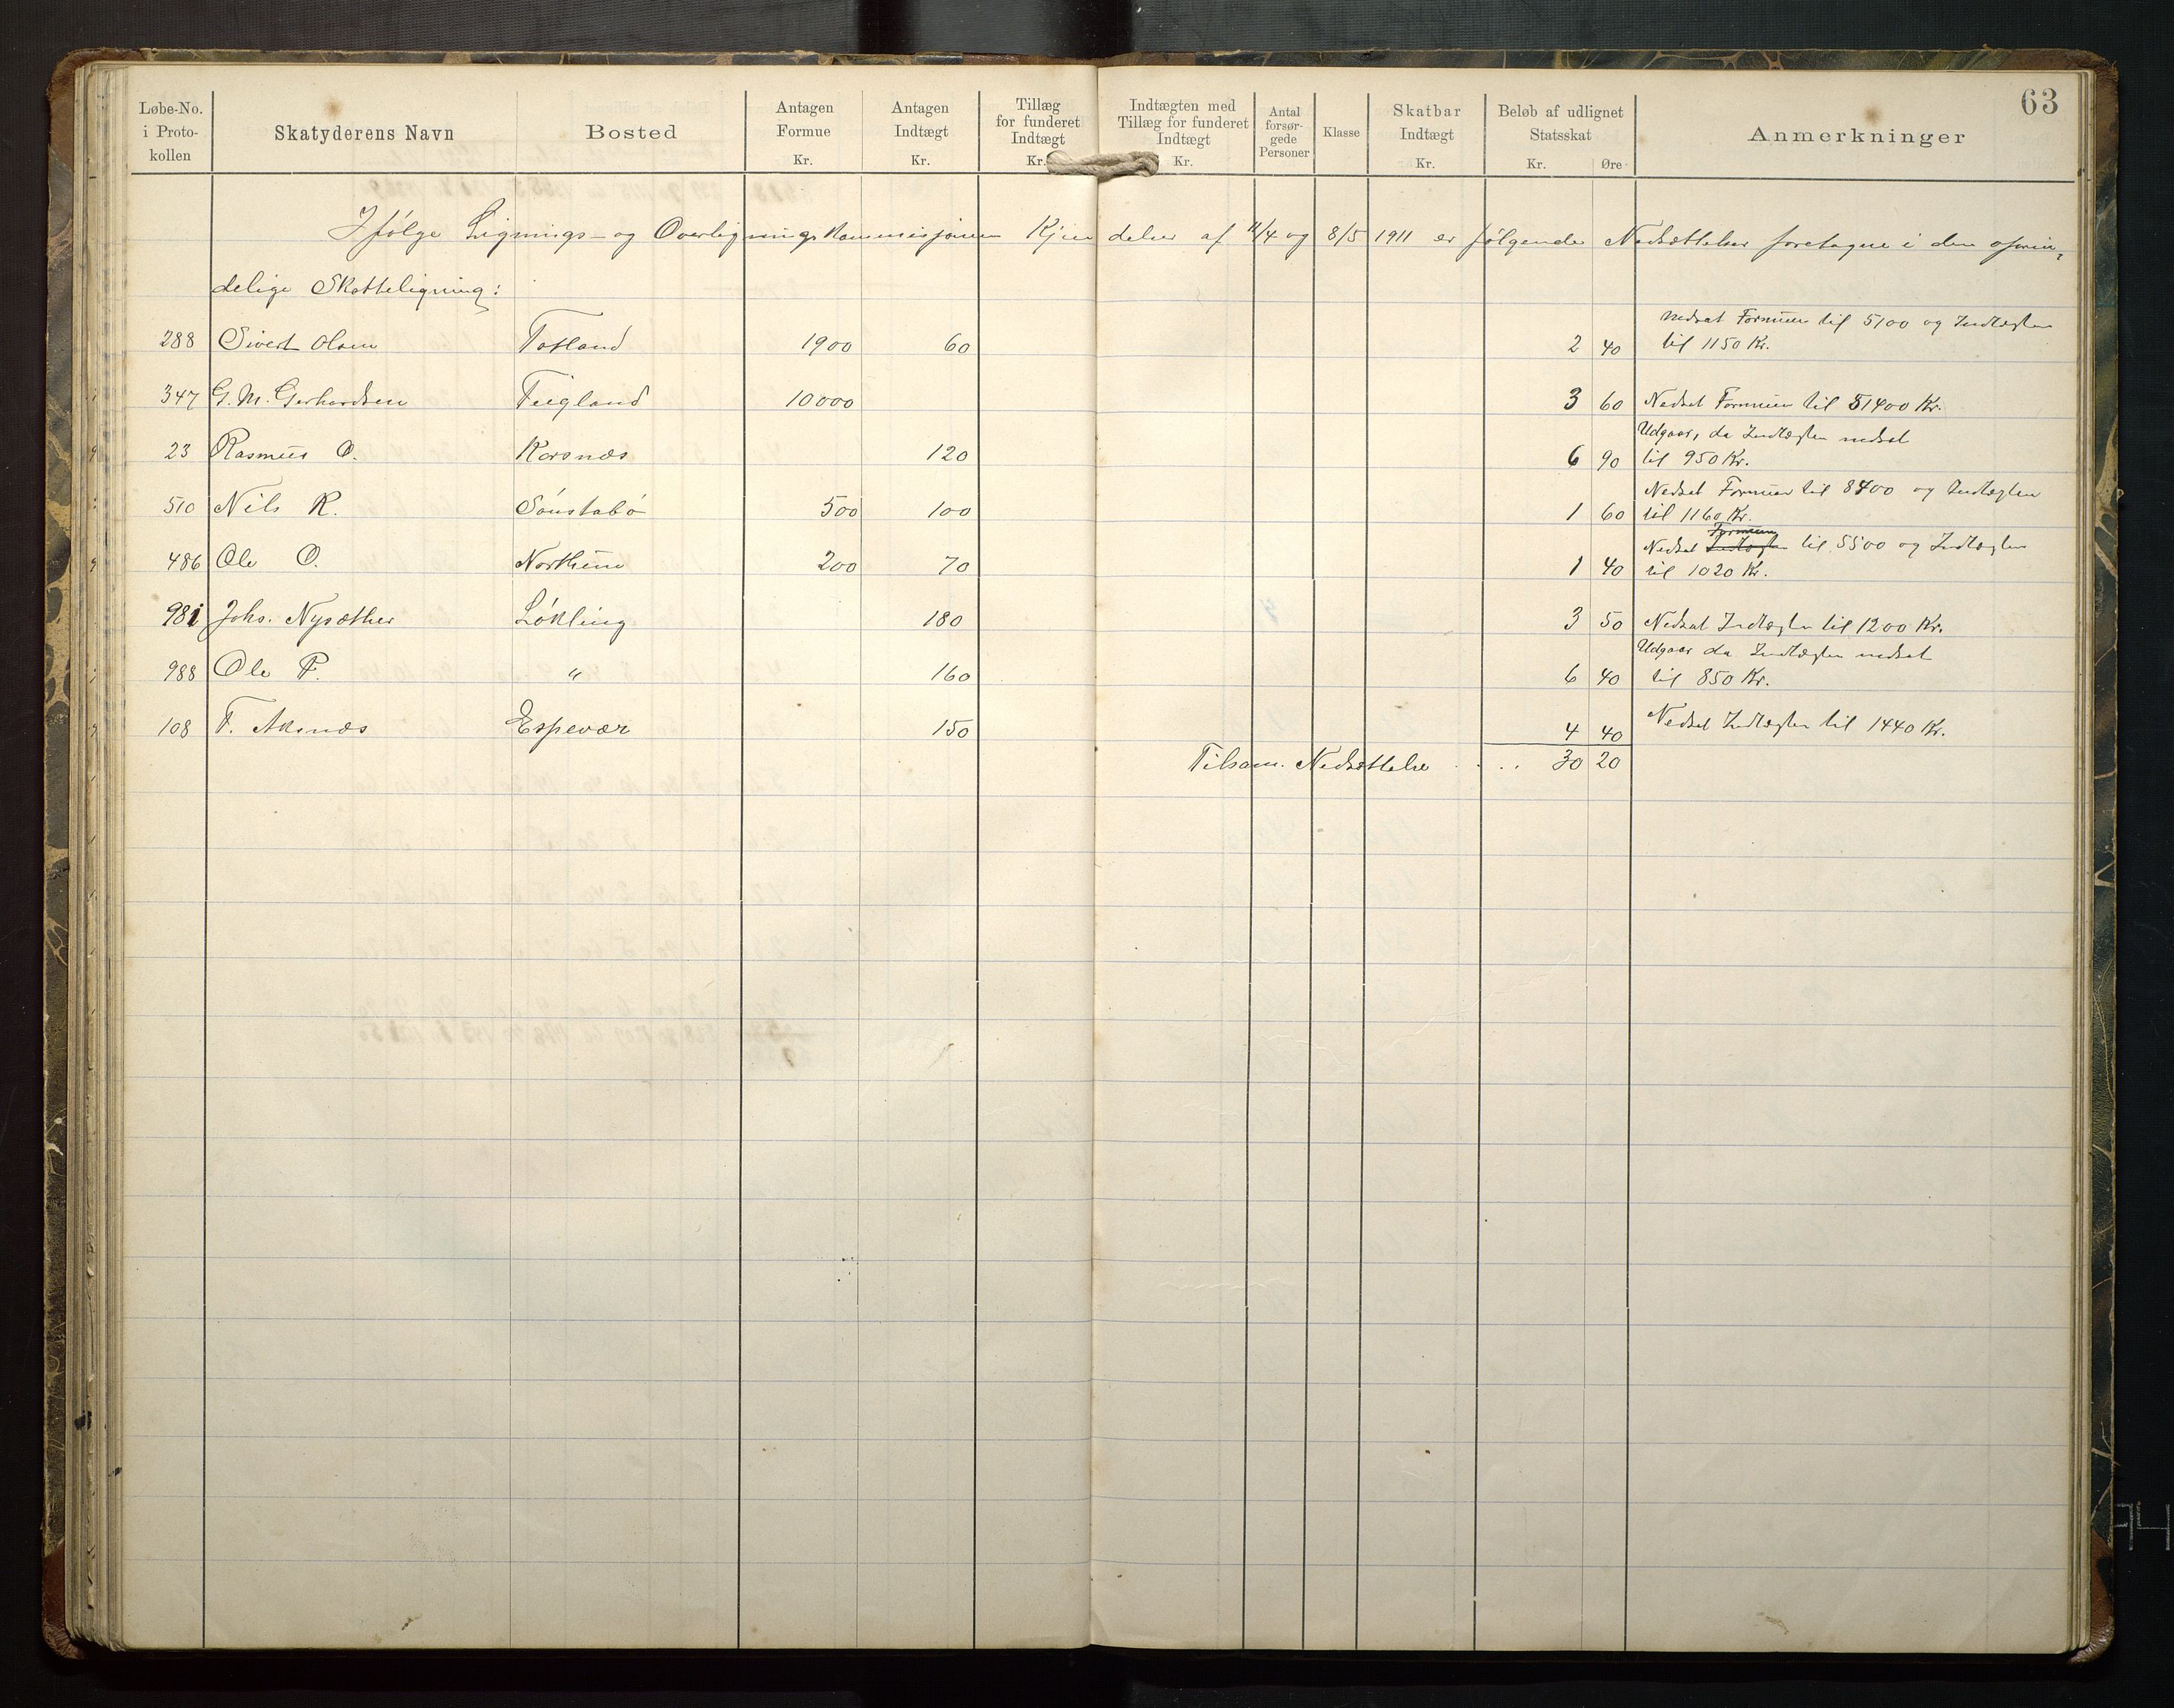 63
Løbe-No. i Proto-kollen | Skatyderens Navn | Bosted | Antagen Formue Kr. | Antagen Indtægt Kr. | Tillæg for funderet Indtægt Kr. | Indtægten med Tillæg for funderet Indtægt Kr. | Antal forsør-gede Personer | Klasse | Skatbar Indtægt Kr. | Beløb af udlignet Statsskat Kr. Øre | Anmerkninger
Ifølge Lignings- og Overligningskommissjonens Kjendelser af 11/4 og 8/5 1911 er følgende Nedsættelser foretagne i den oprin-
delige Skatteligning:
288 Sivert Olsen Totland 1900 60 2 40 Nedsat Formuen til 5100 og Indtægten til 1150 Kr.
347 G. M. Gerhardsen Teigland 10000 3 60 Nedsat Formuen til 51400 Kr.
23 Rasmus O. Korsnæs 120 6 90 Udgaar, da Indtægten nedsat til 950 Kr.
510 Nils K. Sønstabø 500 100 1 60 Nedsat Formuen til 8400 og Indtægten til 1160 Kr.
486 Ole O. Northun 200 70 1 40 Nedsat Indtægten Formuen til 5500 og Indtægten til 1020 Kr.
981 Johs. Nysæther Løkling 180 3 50 Nedsat Indtægten til 1200 Kr.
988 Ole P. " 160 6 40 Udgaar da Indtægten nedsat til 850 Kr.
108 T. Aksnæs Espevær 150 4 40 Nedsat Indtægten til 1440 Kr.
Tilsam. Nedsættelse .... 30 20